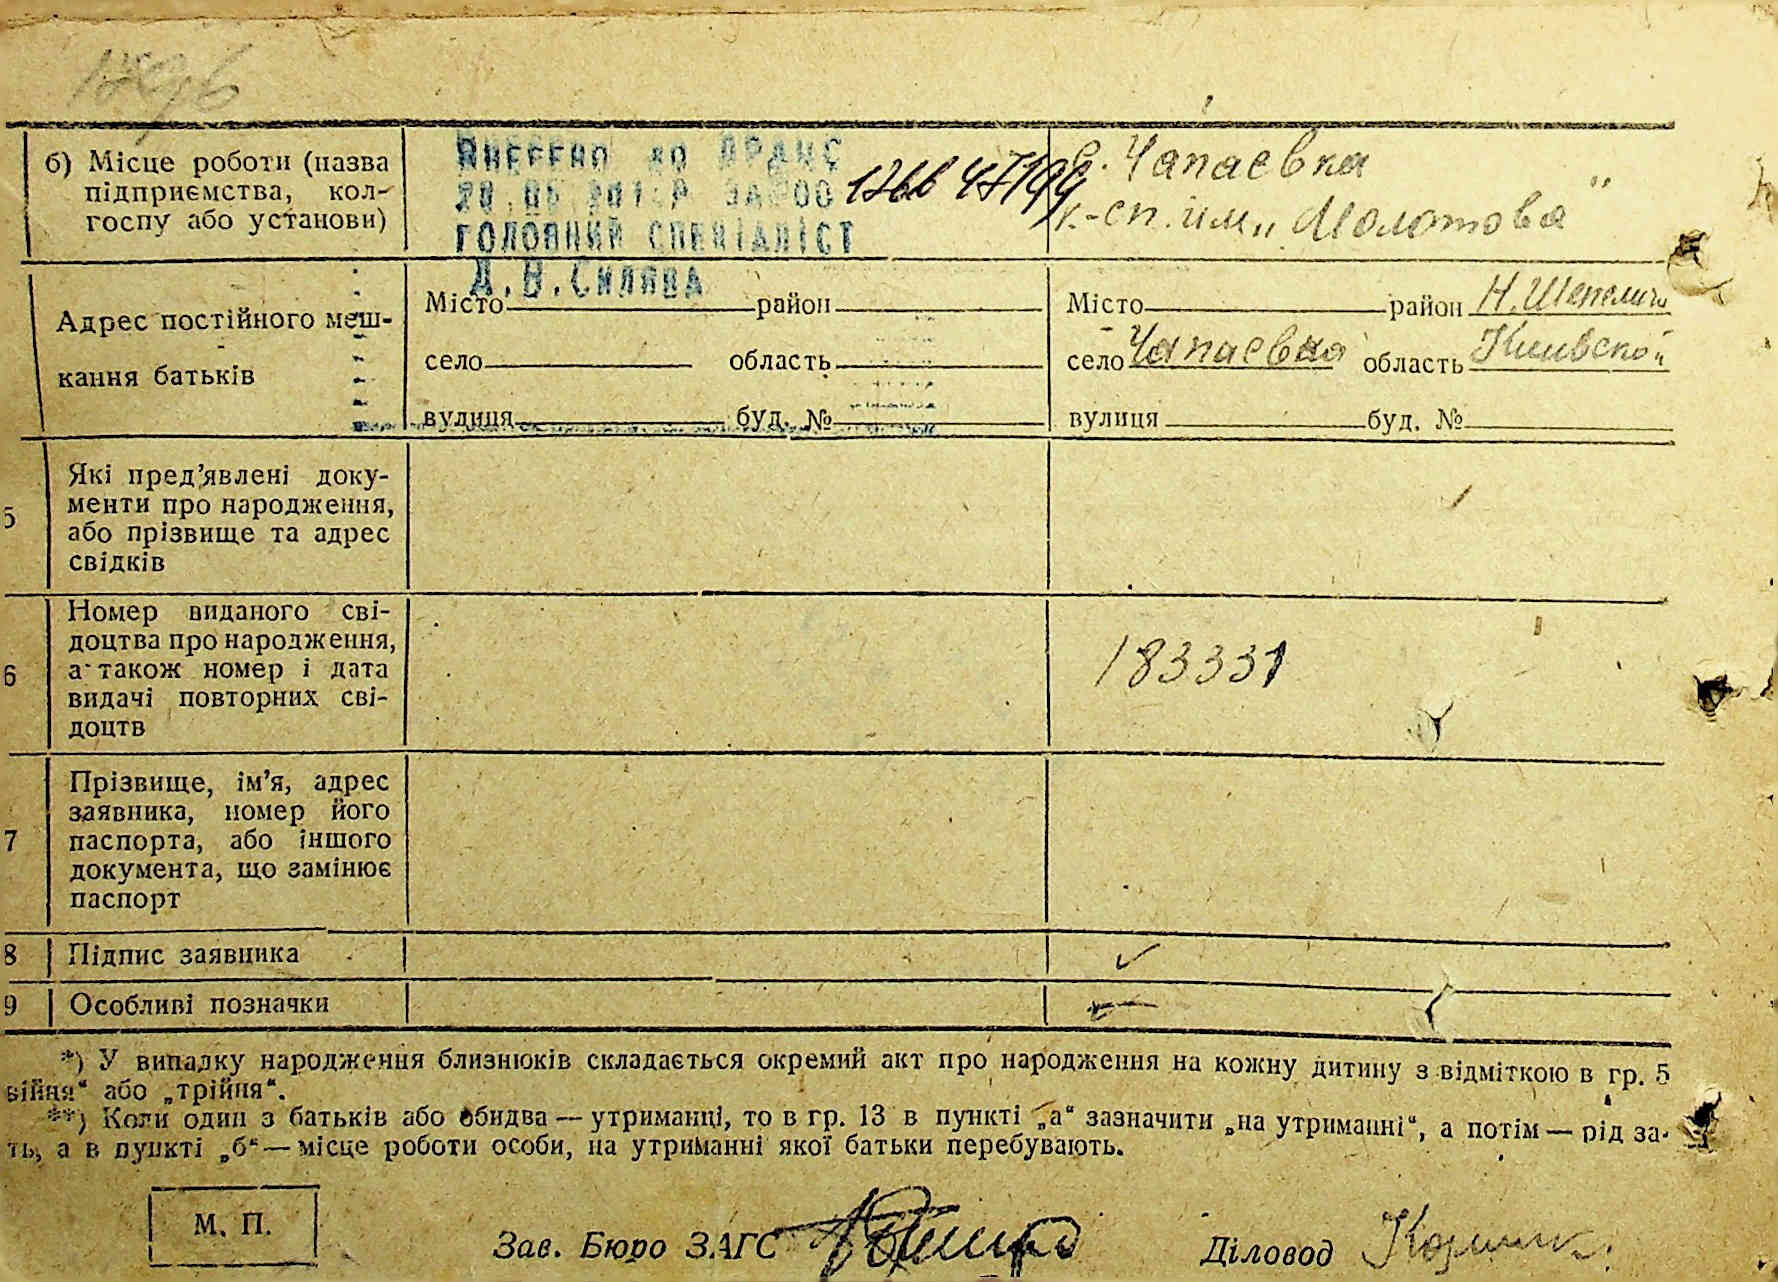 б) Місце роботи (назва
підприємства, кол-
госпу або установи)
ГОЛОВНИЙ СПЕЦІАЛІСТ
с. Чапаевка
к-сп. им. „Молотова"
Адрес постійного меш-
кання батьків
Місто район
село область
вулиця буд. №
Місто район Н. Шепеличи
село Чапаевка область Киивской
вулиця буд. №
5 Які пред’явлені доку-
менти про народження,
або прізвище та адрес
свідків
6 Номер виданого сві-
доцтва про народження,
а також номер і дата
видачі повторних сві-
доцтв
183331
7 Прізвище, ім’я, адрес
заявника, номер його
паспорта, або іншого
документа, що замінює
паспорт
8 Підпис заявника
9 Особливі позначки
*) У випадку народження близнюків складається окремий акт про народження на кожну дитину з відміткою в гр. 5
війня“ або „трійня“.
**) Коли один з батьків або обидва — утриманці, то в гр. 13 в пункті „а“ зазначити „на утриманні“, а потім — рід за-
ть, а в пункті „б“ — місце роботи особи, на утриманні якої батьки перебувають.
М. П.
Зав. Бюро ЗАГС
Діловод